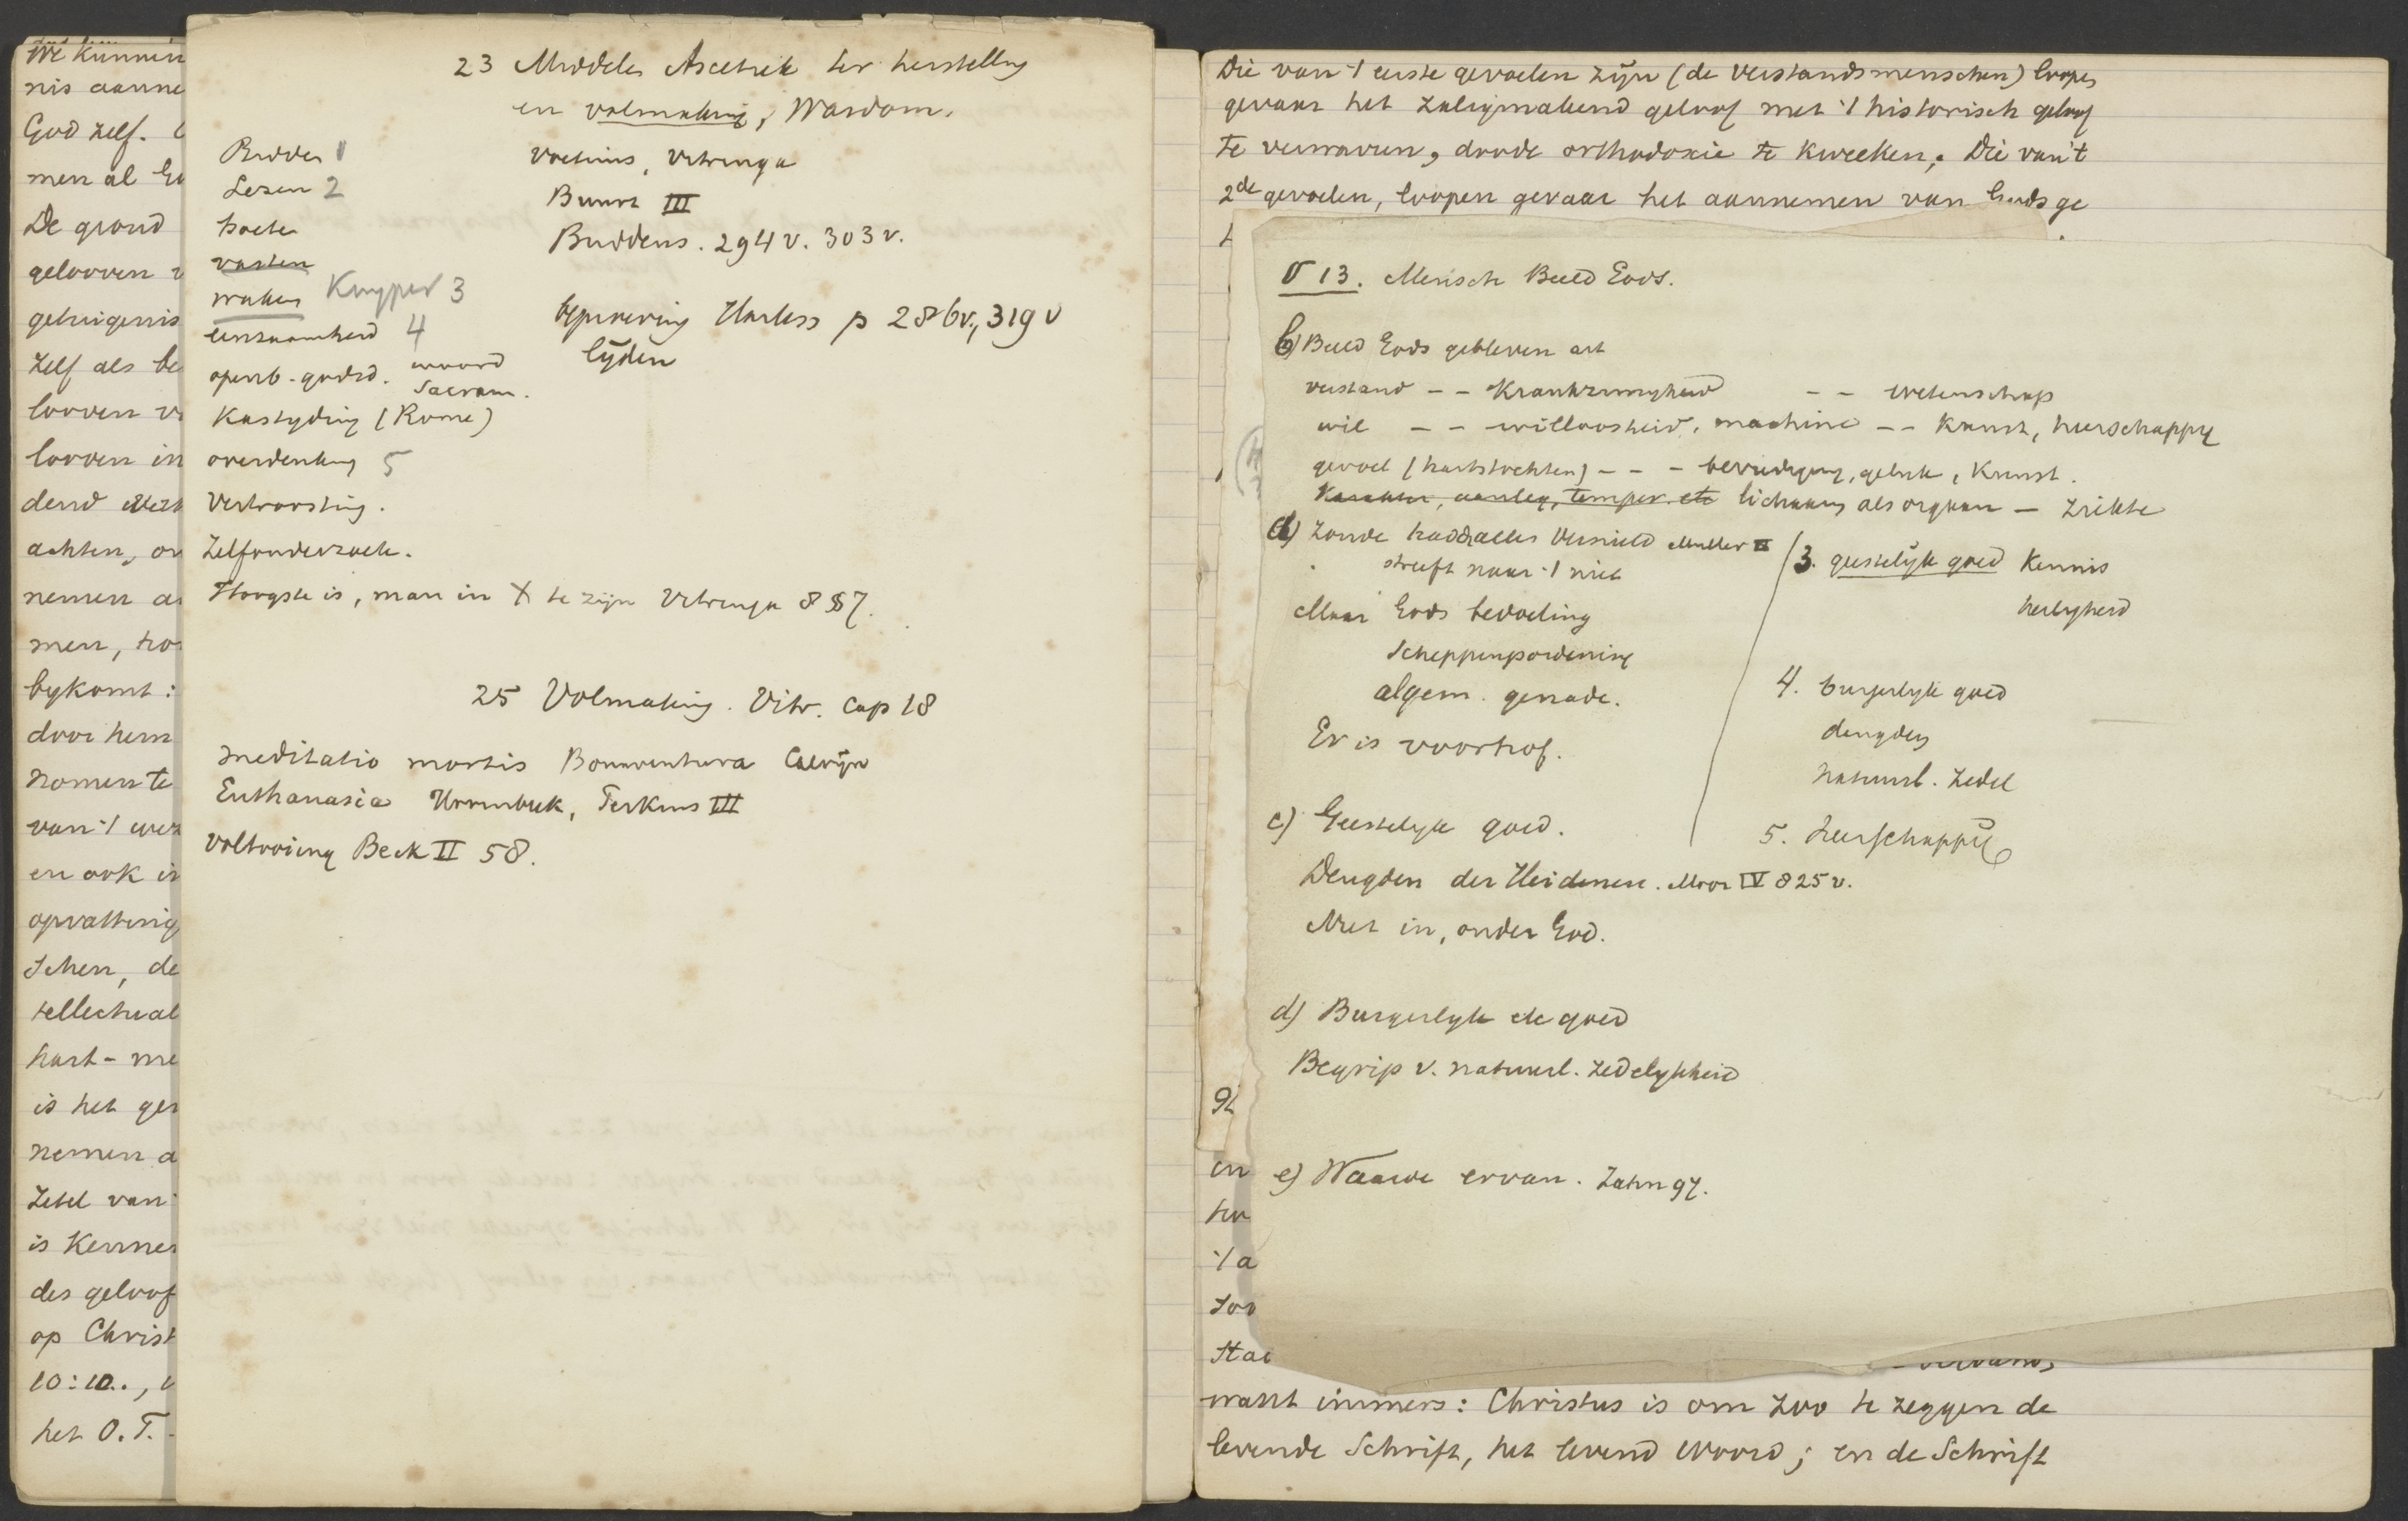 We kunnen
nis aanne
God zelf.
men al
De grond
gelooven
getuigenis
zelf als be
looven
looven in
dend
achten, on
nemen a
men,
bykomt:
door hem
nomen te
van 't
en ook
opvatting
schen, de
tellectual
hart - me
is het
nemen a
Zetel van
is Kennen
des geloof
op Christ
10:10.,
het O.T.
23 Middelen Ascetiek ter herstelling
en volmaking, Wasdom.
Bidden 1
Lezen 2
boete
vasten
waken Kuyper 3
eenzaamheid 4
openb. godsd. woord
Sacram.
Kastyding (Rome)
overdenking 5
Vertroosting.
Zelfonderzoek.
Hoogste is, man in X te zijn Vitringa 8 § 7.
Voetius, Vitringa
Buurt III
Buddeus. 294 v. 303 v.
beproeving Harless p 286v., 319 v
lijden
25 Volmaking. Vitr. Cap 18
meditatio mortis Bonaventura Calvijn
Euthanasia Hoornbeek, Perkins III
Voltooiing Beck II 58.
Die van 't eerste gevoelen zijn (de verstandsmenschen) loopen
gevaar het zaligmakend geloof met 't historisch geloof
te verwarren, doode orthodoxie te kweeken. Die van 't
2de gevoelen, loopen gevaar het aannemen van Gods ge
§ 13. Mensch Beeld Gods.
b) Beeld Gods gebleven
verstand - - Krankzinnigheid - - wetenschap
wil - - willoosheid, machine - - Kunst, heerschappy
gevoel (hartstochten) - - - bevrediging, geluk, Kunst.
Karakter, aanleg, temper. etc lichaam als orgaan - ziekte
a) Zonde had alles vernield Muller II
streeft naar 't niet
Maar Gods bedoeling
Scheppingsordening
algem. genade.
Er is voorhof.
3. geestelijk goed Kennis
heiligheid
4. burgerlyk goed
deugden
natuurl. zedel
5. heerschappij
c) Geestelyk goed.
Deugden der Heidenen. Moor IV 825 v.
Niet in, onder God.
d) Burgerlyk etc goed
Begrip v. natuurl. Zedelykheid
e) Waarde ervan. Zahn 97.
en
't a
want immers: Christus is om zoo te zeggen de
levende Schrift, het levend Woord; en de Schrift